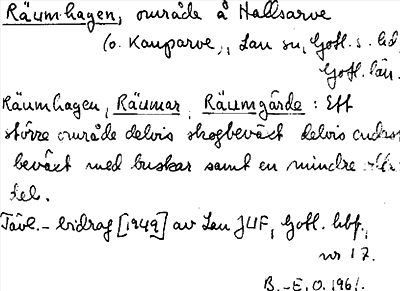 Räumhagen, område å Hallsarve
(o. Kauparve), Lau sn, Gotl. s. hd,
Gotl. län.
Räumhagen, Räumar, Räumgärde: Ett
större område delvis skogbeväxt delvis
beväxt med buskar samt en mindre
del.
Tävl.-bidrag [1949] av Lau JUF, Gotl. hbf,
nr 17.
B.-E. O. 1961.